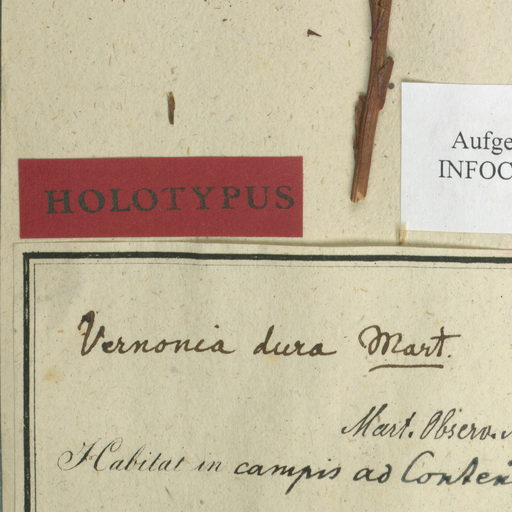 Aufge
INFOC
HOLOTYPUS
Vernonia dura Mart.
Mart. Observ.
Habitat in campis ad Conten